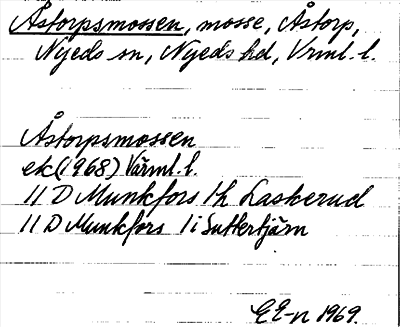 Åstorpsmossen, mosse, Åstorp,
Nyeds sn, Nyeds hd, Vrml. l.
Åstorpsmossen
ek (1968) Värml. l.
11 D Munkfors 1h Laskerud
11 D Munkfors 1i Suttertjärn
EE-n 1969.